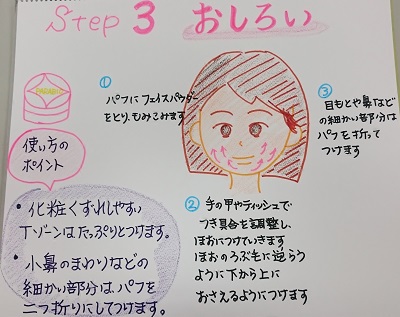 Step 3 おしろい
①
パフにフェイスパウダー
をとり、もみこみます
③
目もとや鼻など
の細かい部分は
パフを折って
つけます
使い方の
ポイント
• 化粧くずれしやすい
Tゾーンはたっぷりとつけます。
• 小鼻のまわりなどの
細かい部分は、パフを
二つ折りにしてつけます。
② 手の甲やティッシュで
つき具合を調整し、
ほおにつけていきます
ほおのうぶ毛に逆らう
ように下から上に
おさえるようにつけます